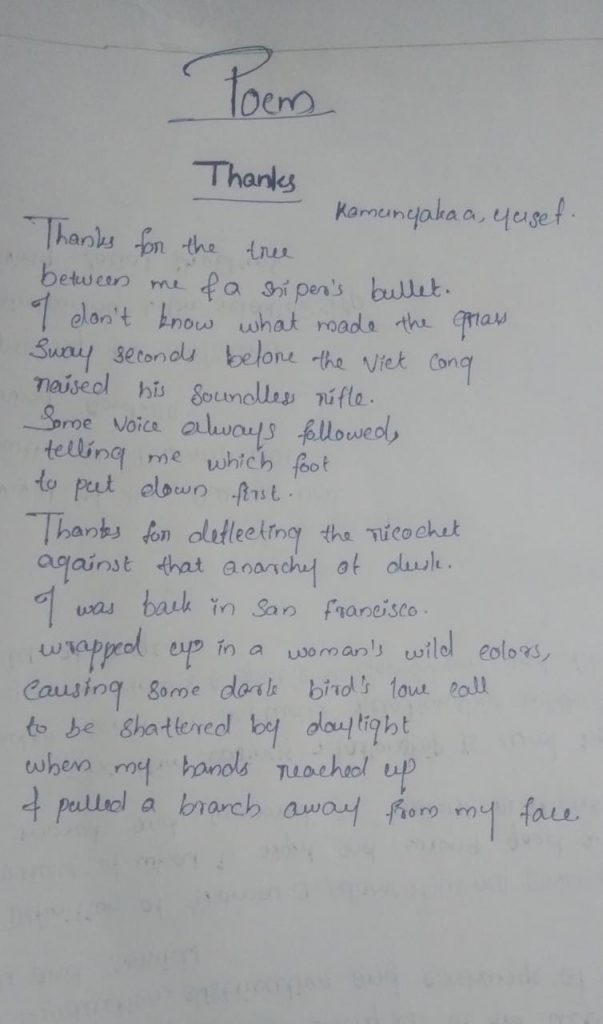 Poem
Thanks
Komunyakaa, yusef.
Thanks for the tree
between me & a sniper's bullet.
I don't know what made the grass
Sway seconds before the Viet Cong
raised his Soundless rifle.
Some voice always followed,
telling me which foot
to put down first.
Thanks for deflecting the ricochet
against that anarchy of dusk.
I was back in San francisco.
wrapped up in a woman's wild colors,
causing some dark bird's love call
to be shattered by daylight
when my hands reached up
& pulled a branch away from my face